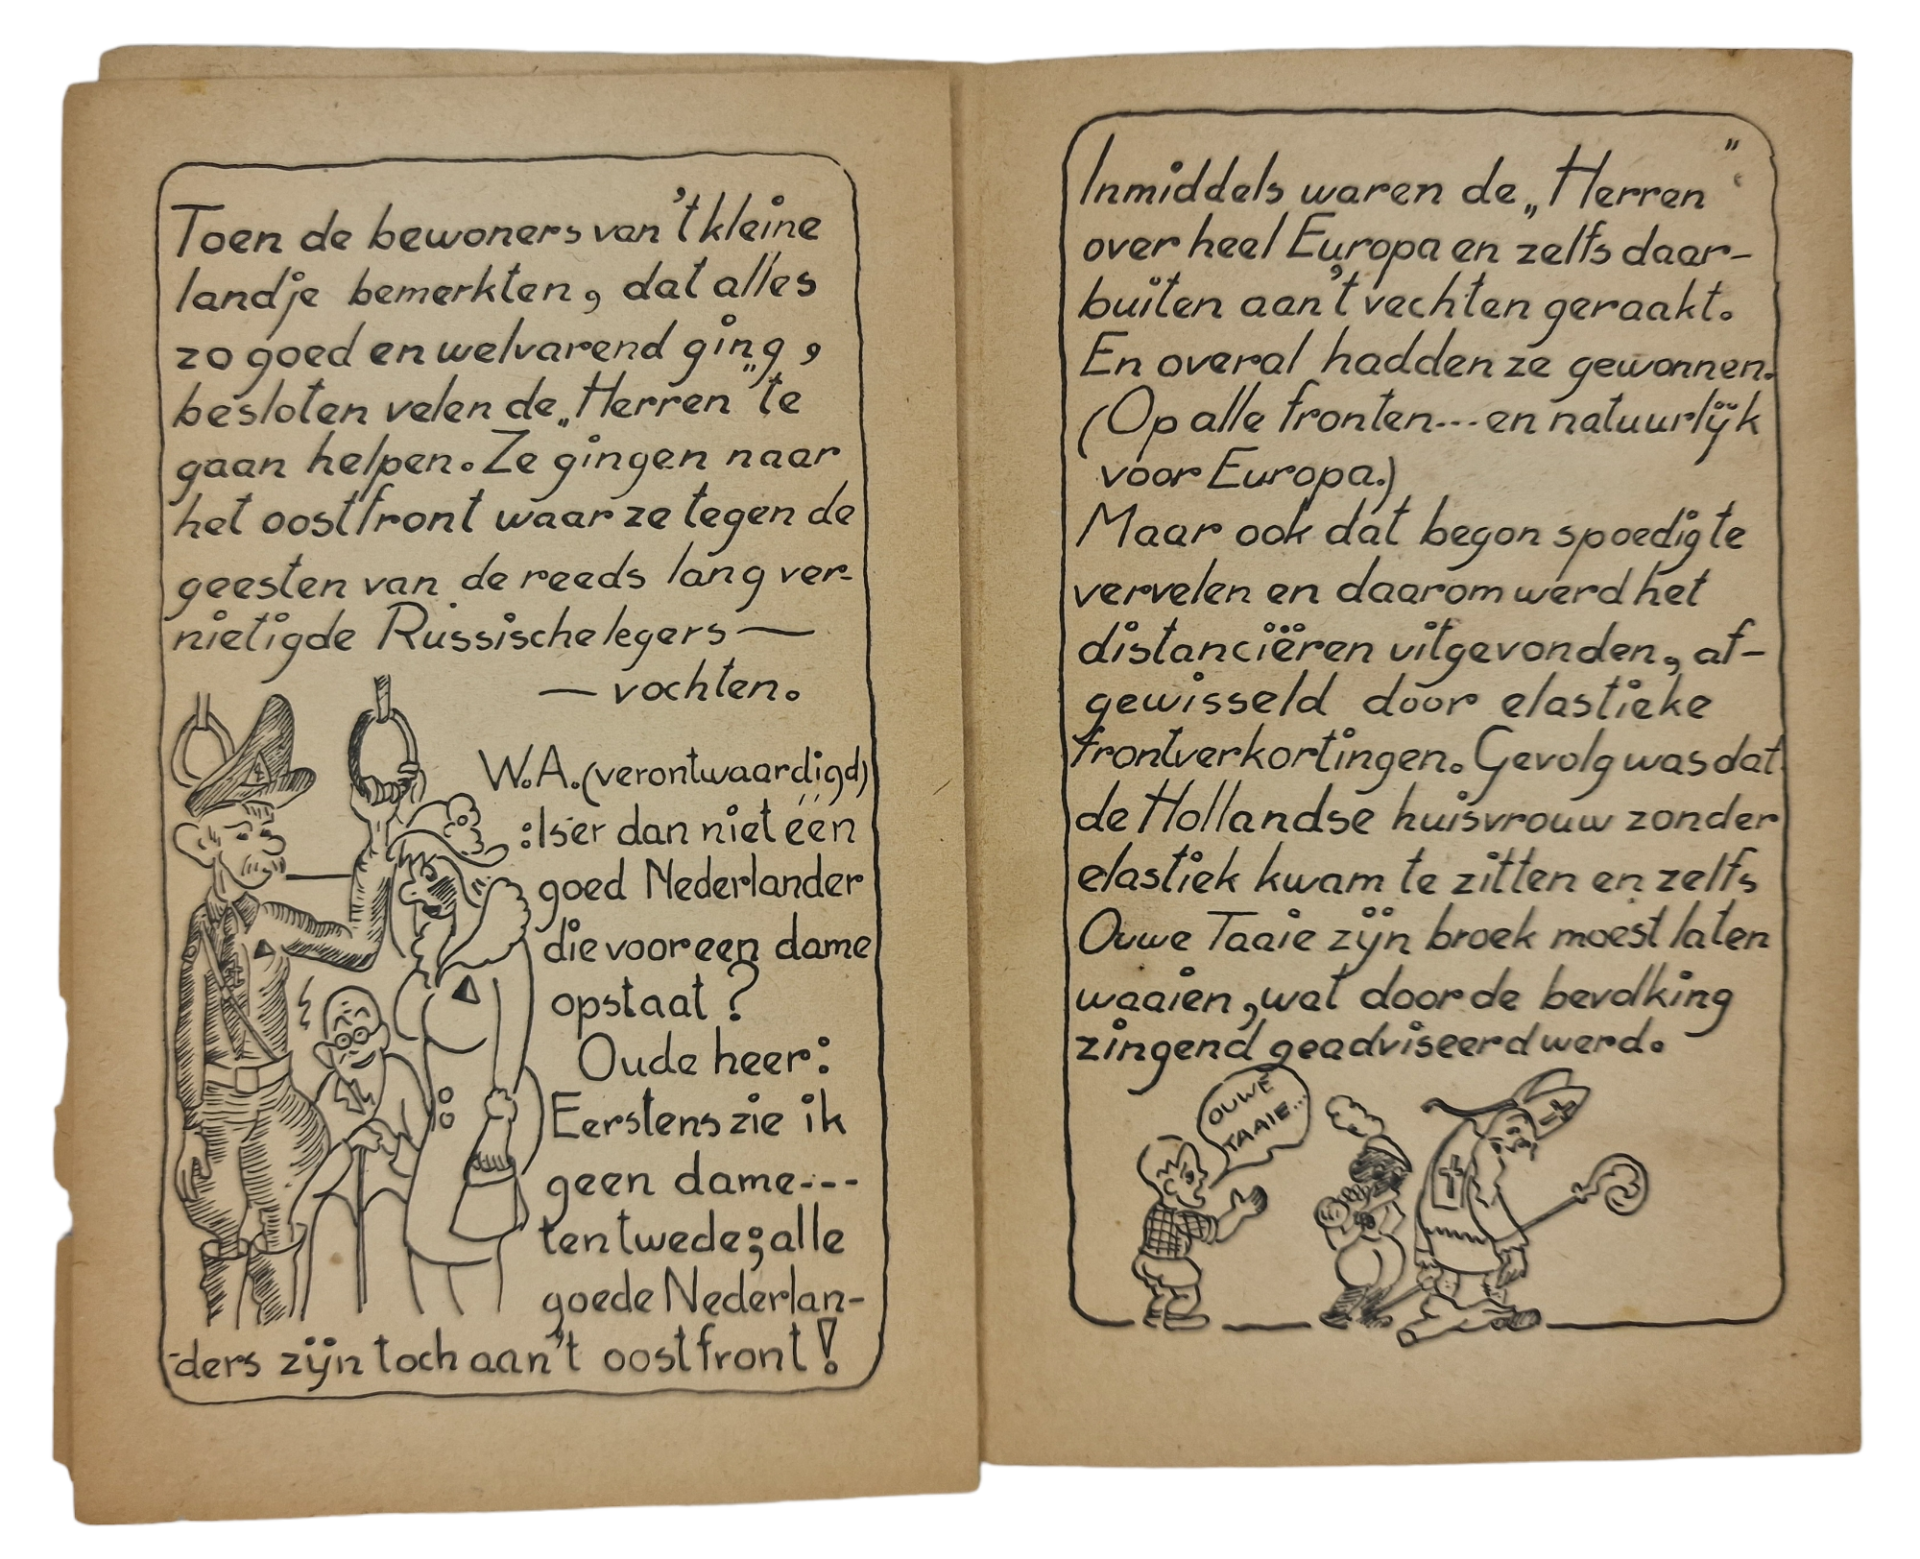 Toen de bewoners van 't kleine
landje bemerkten, dat alles
zo goed en welvarend ging,
besloten velen de „Herren" te
gaan helpen. Ze gingen naar
het oostfront waar ze tegen de
geesten van de reeds lang ver-
nietigde Russische legers —
— vochten.
W.A. (verontwaardigd)
: Is er dan niet één
goed Nederlander
die voor een dame
opstaat?
Oude heer:
Eerstens zie ik
geen dame---
ten twede; alle
goede Nederlan-
-ders zijn toch aan 't oostfront!
Inmiddels waren de „Herren"
over heel Europa en zelfs daar-
buiten aan 't vechten geraakt.
En overal hadden ze gewonnen.
(Op alle fronten---en natuurlijk
voor Europa.)
Maar ook dat begon spoedig te
vervelen en daarom werd het
distanciëren uitgevonden, af-
gewisseld door elastieke
frontverkortingen. Gevolg was dat
de Hollandse huisvrouw zonder
elastiek kwam te zitten en zelfs
Ouwe Taaie zijn broek moest laten
waaien, wat door de bevolking
zingend geadviseerd werd.
OUWE
TAAIE...